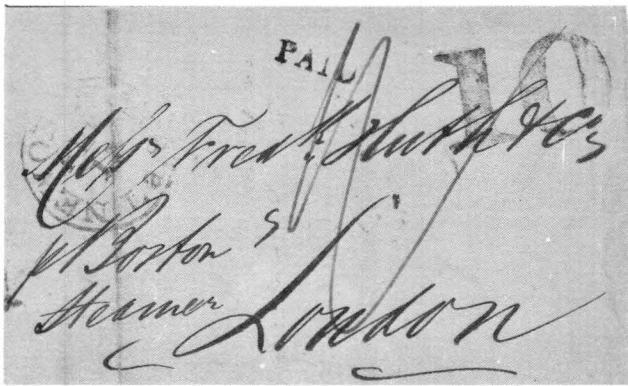 PAID
10
Messrs Fredk Huth & Co
pr Boston
Steamer
London